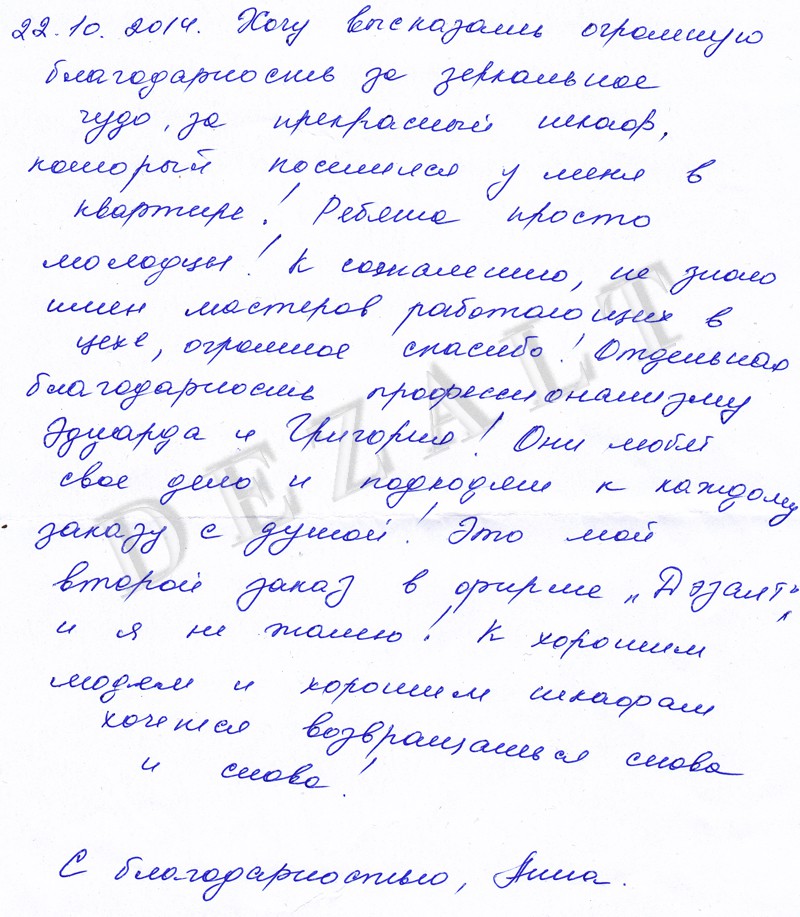 22.10.2014. Хочу высказать огромную
благодарность за зеркальное
чудо, за прекрасный шкаф,
который поселился у меня в
квартире! Ребята просто
молодцы! К сожалению, не знаю
имен мастеров работающих в
цехе, огромное спасибо! Отдельная
благодарность профессионализму
Эдуарда и Григория! Они любят
свое дело и подходят к каждому
заказу с душой! Это мой
второй заказ в фирме „Дэзалт"
и я не жалею! К хорошим
людям и хорошим шкафам
хочется возвращаться снова
и снова!
С благодарностью, Анна.
DEZALT